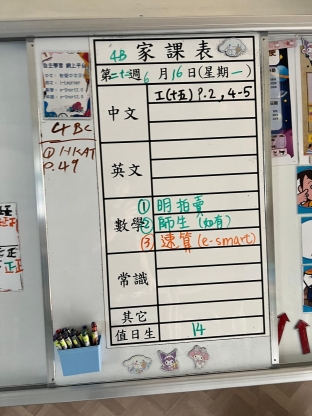 4B 家課表
第二十二週 6月16日(星期一)
中文
工(十五) P.2, 4-5
英文
數學
① 明拍賣
② 師生(如有)
③ 速算(e-smart)
常識
其它
值日生 14
自主學習 網上平台
4BC
① HKAT
P.49